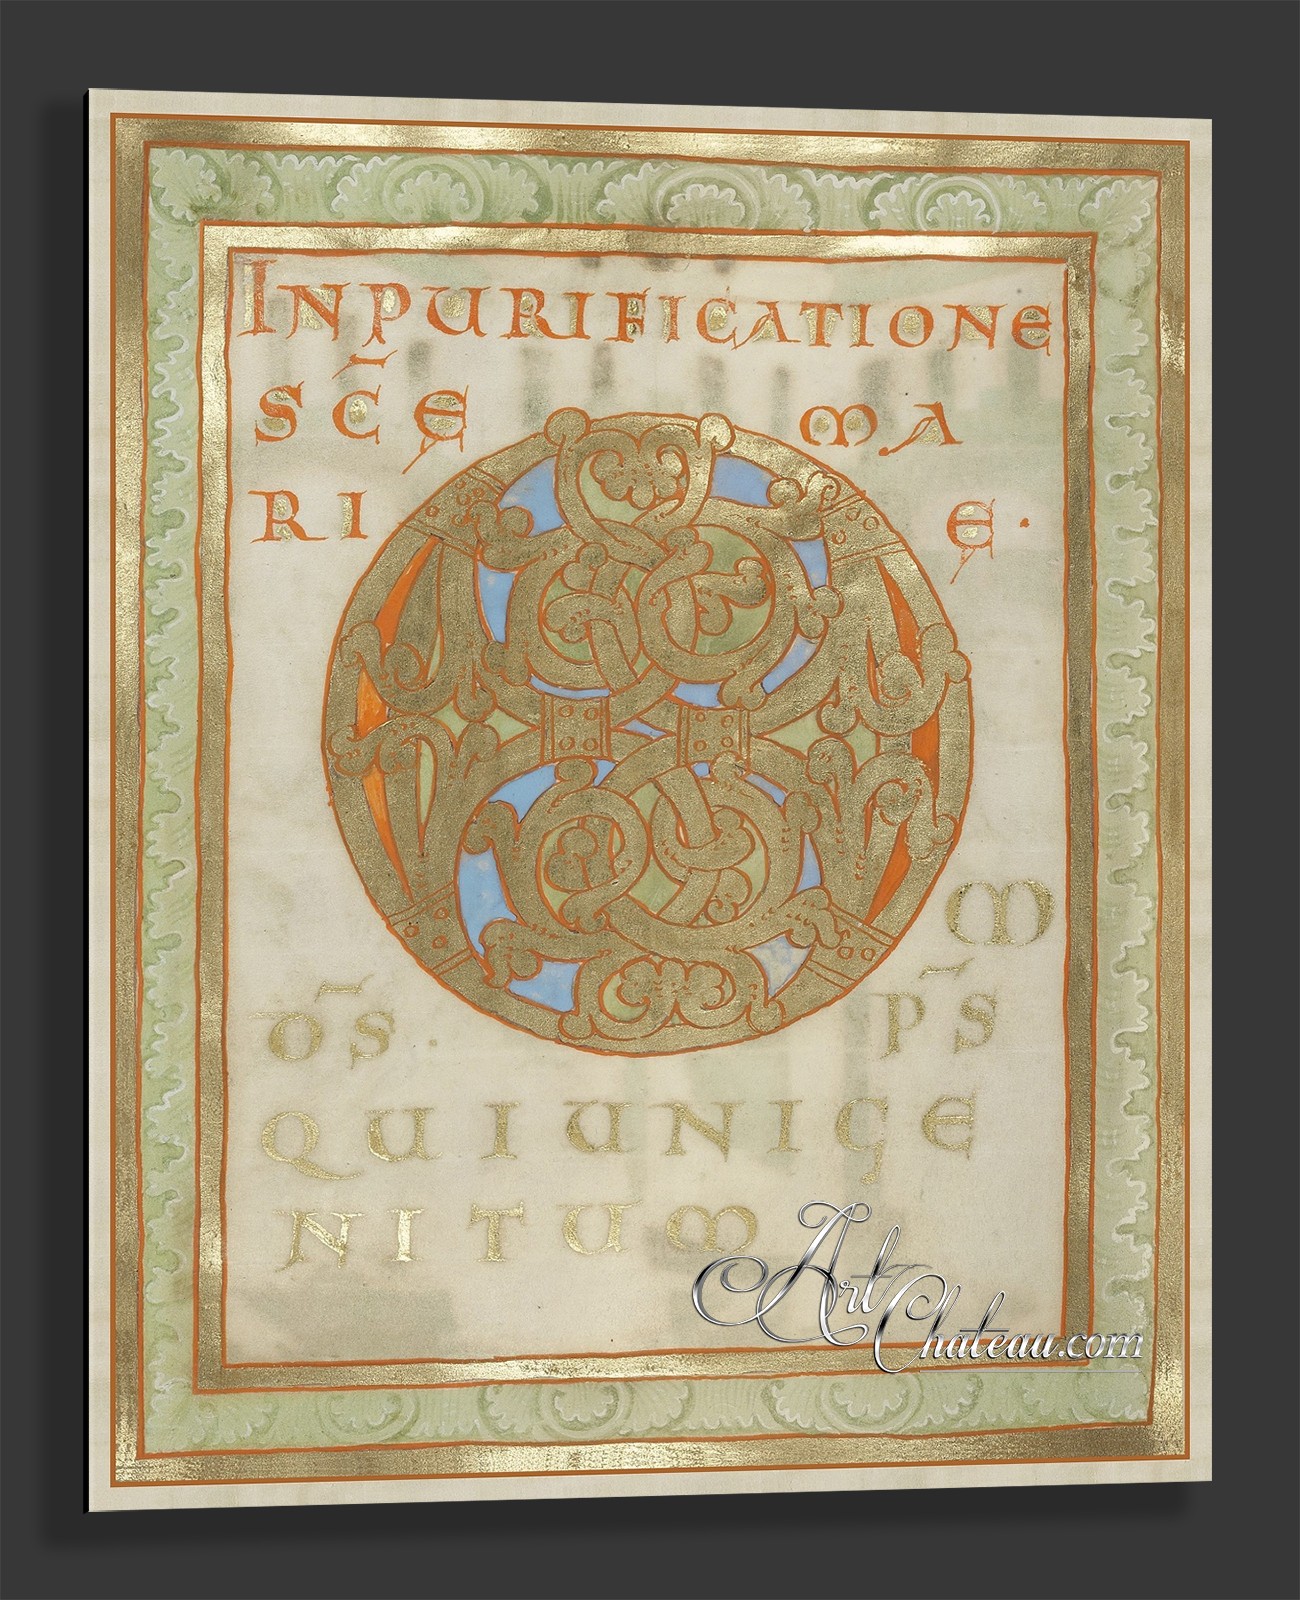 INPURIFICATIONE
SC̄E MA
RI E·
O M
ŌS̄. P̄S̄
QUIUNIGE
NITUM
Art
Chateau.com